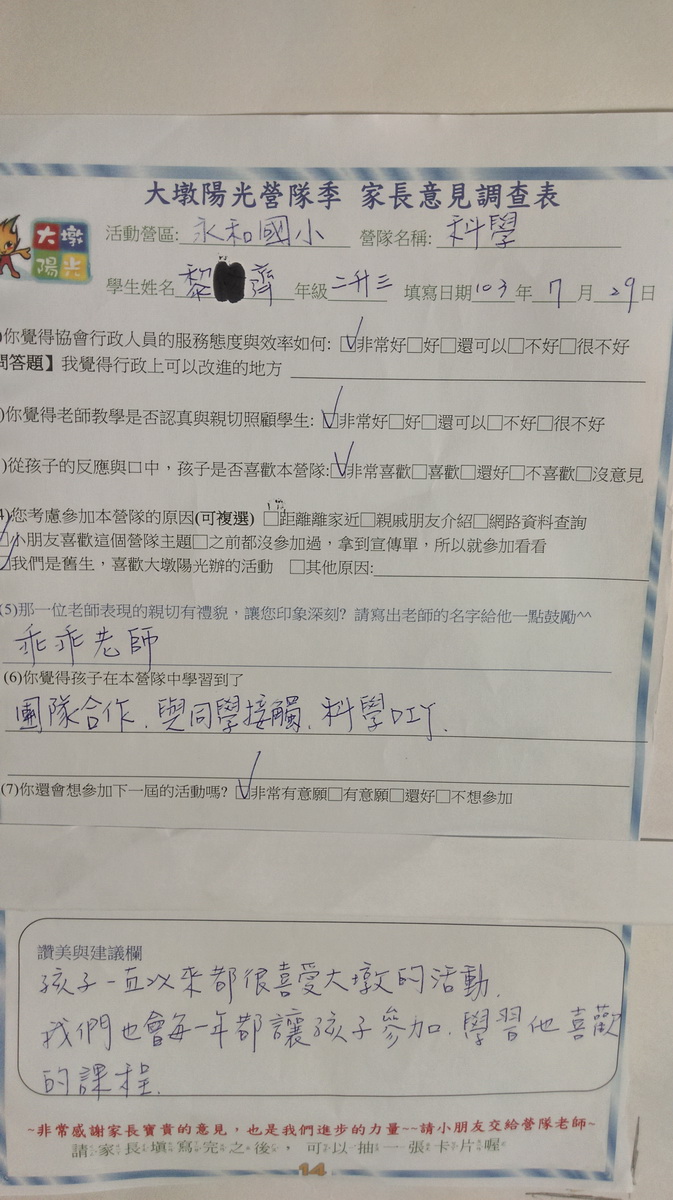 大墩陽光營隊季 家長意見調查表
大墩
陽光
活動營區: 永和國小 營隊名稱: 科學
學生姓名 黎 齊 年級 二升三 填寫日期 103 年 7 月 29 日
)你覺得協會行政人員的服務態度與效率如何: ☑非常好□好□還可以□不好□很不好
問答題】我覺得行政上可以改進的地方
)你覺得老師教學是否認真與親切照顧學生: ☑非常好□好□還可以□不好□很不好
)從孩子的反應與口中，孩子是否喜歡本營隊:☑非常喜歡□喜歡□還好□不喜歡□沒意見
4)您考慮參加本營隊的原因(可複選) □距離離家近□親戚朋友介紹□網路資料查詢
☑小朋友喜歡這個營隊主題□之前都沒參加過，拿到宣傳單，所以就參加看看
☑我們是舊生，喜歡大墩陽光辦的活動 □其他原因:
(5)那一位老師表現的親切有禮貌，讓您印象深刻? 請寫出老師的名字給他一點鼓勵^^
乖乖老師
(6)你覺得孩子在本營隊中學習到了
團隊合作、與同學接觸、科學DIY.
(7)你還會想參加下一屆的活動嗎? ☑非常有意願□有意願□還好□不想參加
讚美與建議欄
孩子一直以來都很喜愛大墩的活動.
我們也會每一年都讓孩子參加.學習他喜歡
的課程.
~非常感謝家長寶貴的意見，也是我們進步的力量~~請小朋友交給營隊老師~
請家長填寫完之後，可以抽一張卡片喔
14